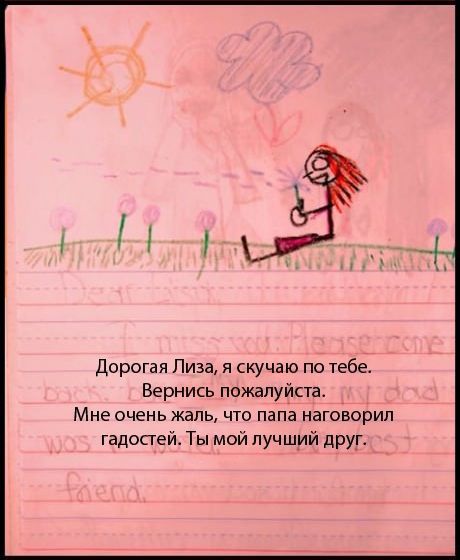 Dear Lisa,
I miss you. Please come
Дорогая Лиза, я скучаю по тебе.
back. my dad
Вернись пожалуйста.
Мне очень жаль, что папа наговорил
гадостей. Ты мой лучший друг.
was best
friend.